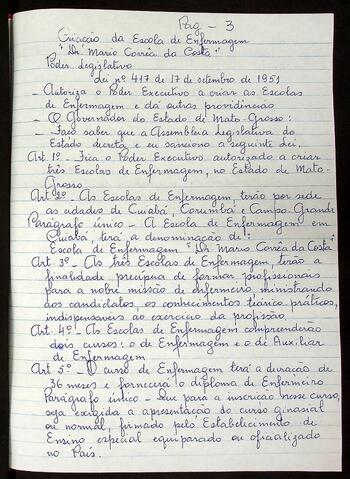 Pag - 3
Criação da Escola de Enfermagem
"Dr Mario Corrêa da Costa"
Poder Legislativo
Lei nº 417 de 17 de setembro de 1951
- Autoriza o Poder Executivo a criar as Escolas
de Enfermagem e dá outras providências
- O Governador do Estado de Mato-Grosso:
- Faço saber que a Assembleia Legislativa do
Estado decreta e eu sanciono a seguinte Lei.
Art 1º - Fica o Poder Executivo autorizado a criar
três Escolas de Enfermagem, no Estado de Mato-
Grosso
Art 2º - As Escolas de Enfermagem, terão por sede
as cidades de Cuiabá, Corumbá e Campo-Grande
Parágrafo único - A Escola de Enfermagem em
Cuiabá, terá a denominação de:
Escola de Enfermagem "Dr Mario Corrêa da Costa"
Art 3º - As três Escolas de Enfermagem, terão a
finalidade precípua de formar profissionais
para a nobre missão de enfermeiro ministrando
aos candidatos, os conhecimentos teórico-práticos,
indispensáveis ao exercício da profissão.
Art 4º - As Escolas de Enfermagem compreenderão
dois cursos: o de Enfermagem e o de Auxiliar
de Enfermagem
Art 5º - O curso de Enfermagem terá a duração de
36 meses e fornecerá o diploma de Enfermeiro
Parágrafo único - Que para a inscrição nesse curso,
seja exigida a apresentação do curso ginasial
ou normal, firmado pelo Estabelecimento de
Ensino especial equiparado ou oficializado
no País.